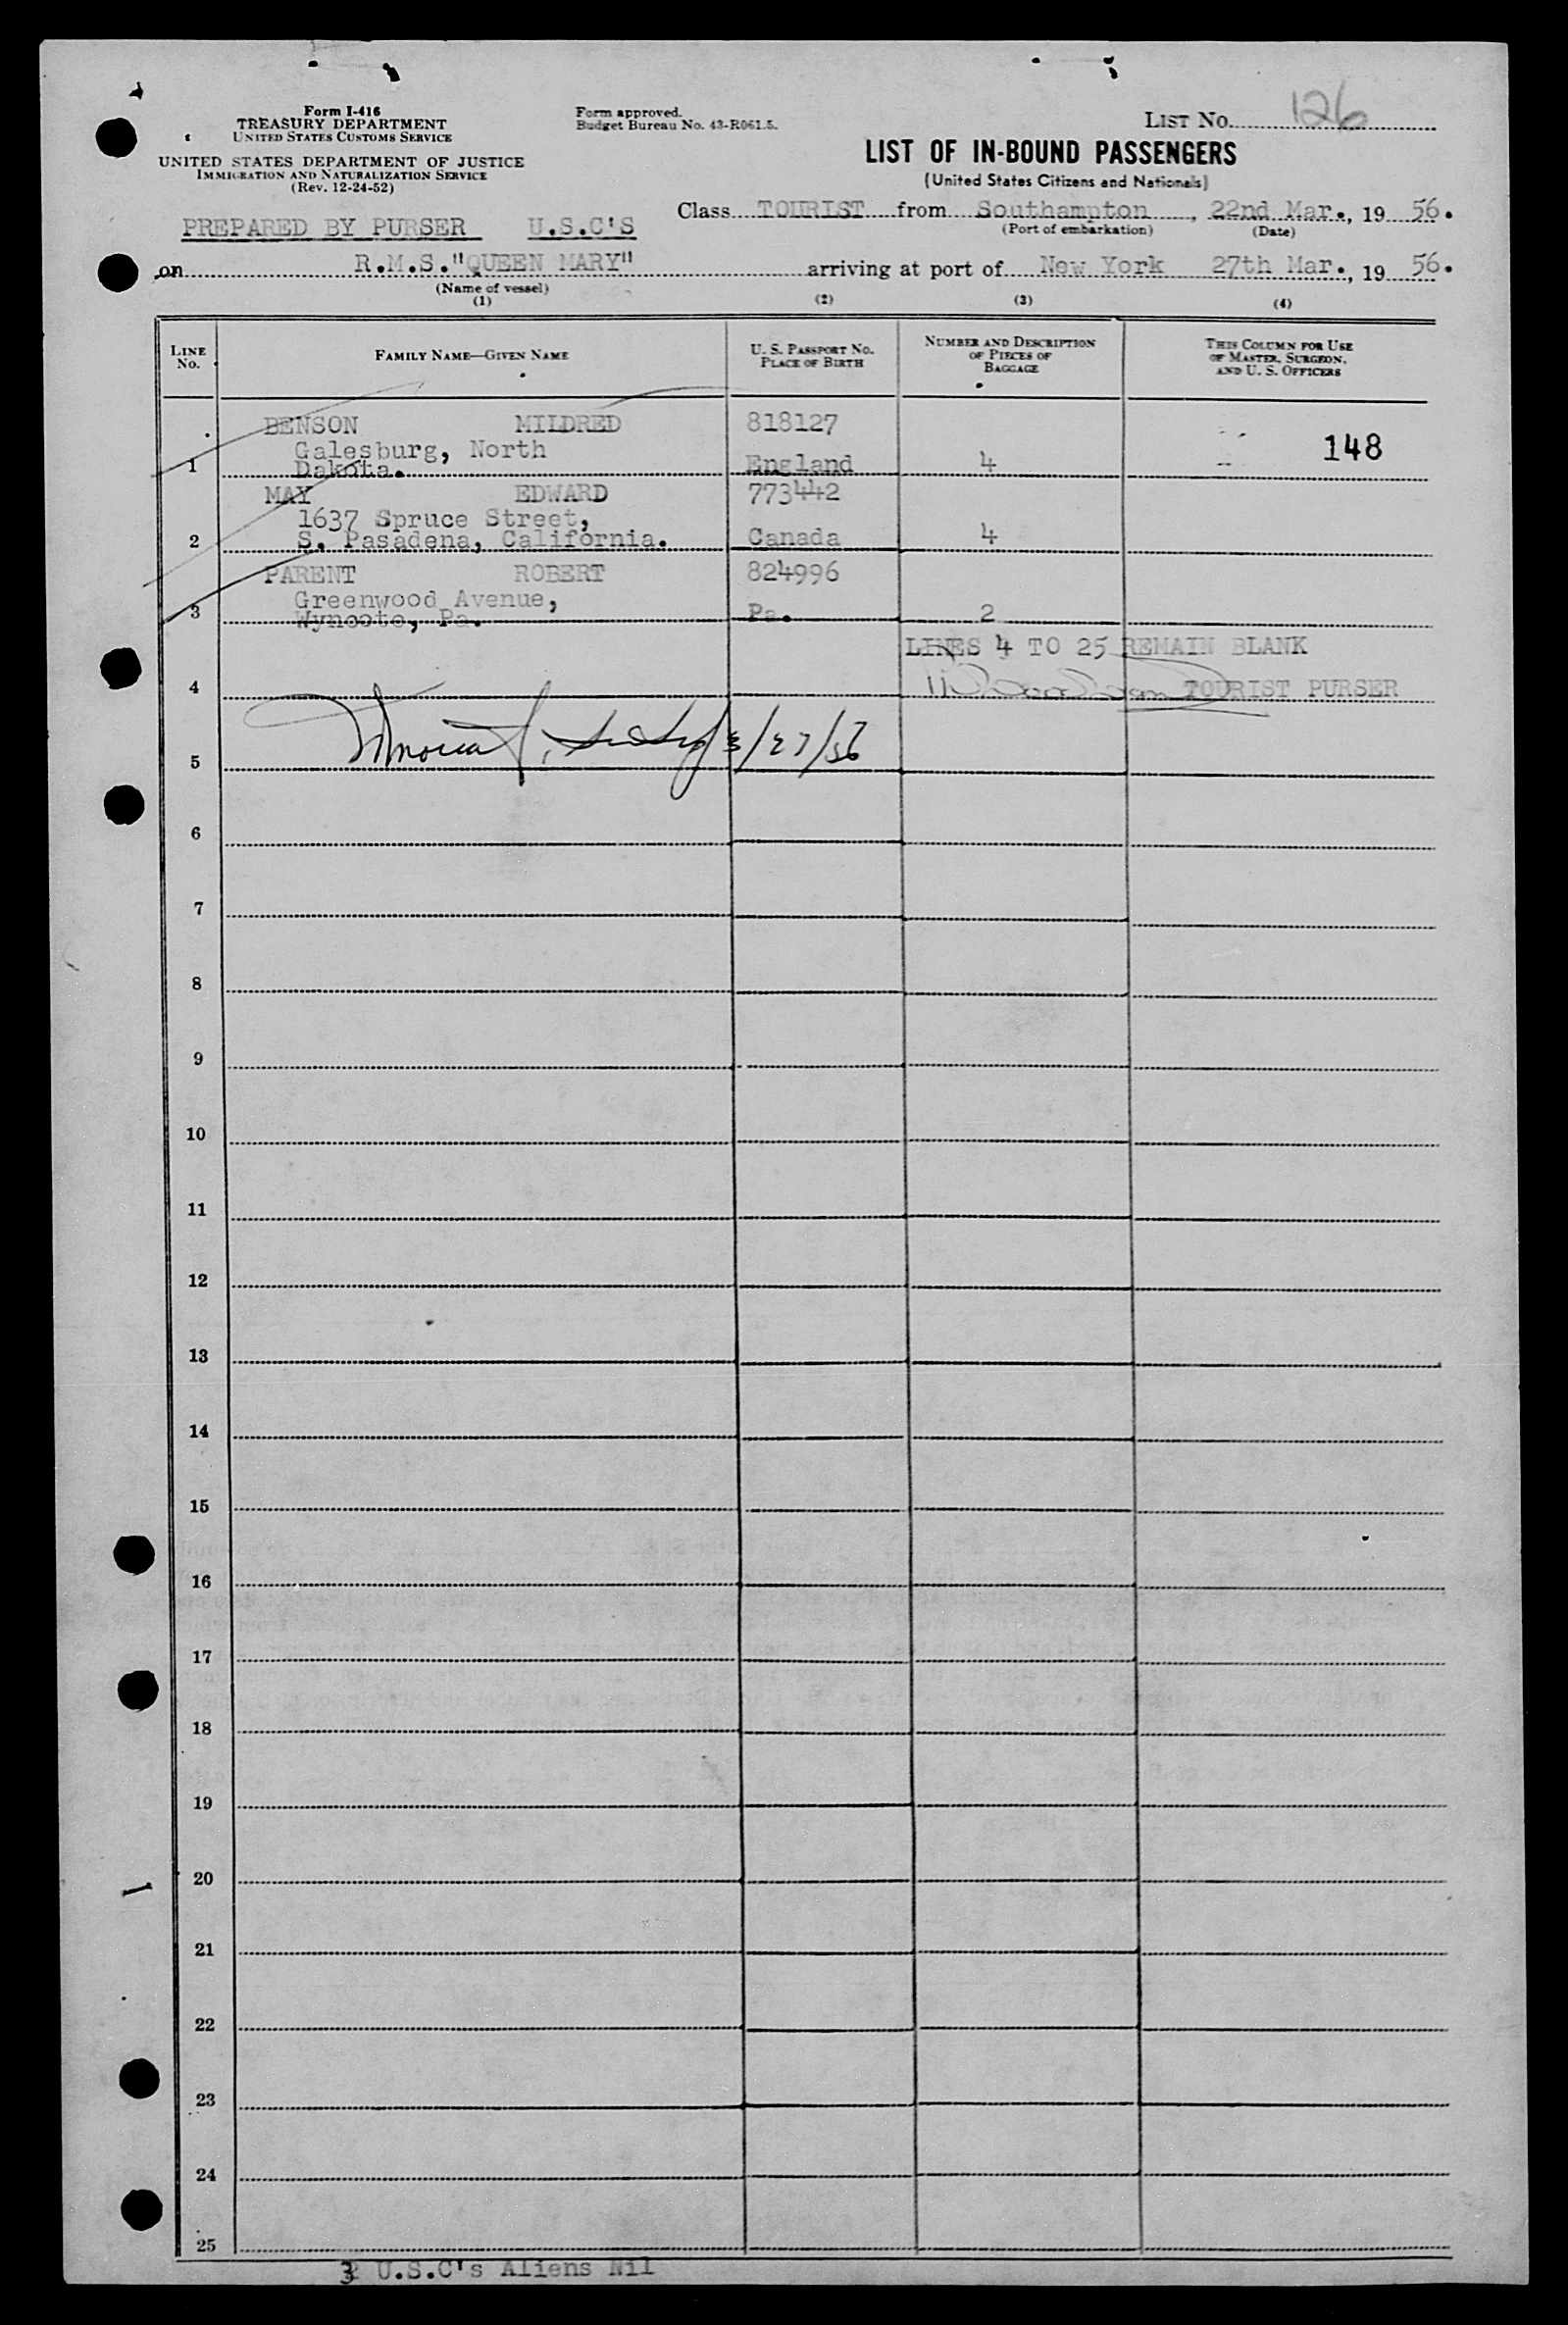 Form I-416
TREASURY DEPARTMENT
UNITED STATES CUSTOMS SERVICE
UNITED STATES DEPARTMENT OF JUSTICE
IMMIGRATION AND NATURALIZATION SERVICE
(Rev. 12-24-52)
Form approved.
Budget Bureau No. 43-R061.5.
LIST NO. 126
LIST OF IN-BOUND PASSENGERS
(United States Citizens and Nationals)
PREPARED BY PURSER U.S.C'S
Class TOURIST from Southampton, 22nd Mar., 19 56.
(Port of embarkation) (Date)
on R.M.S."QUEEN MARY" arriving at port of New York 27th Mar., 19 56.
(Name of vessel)
(1) (2) (3) (4)
LINE NO. FAMILY NAME—GIVEN NAME U. S. PASSPORT NO. PLACE OF BIRTH NUMBER AND DESCRIPTION OF PIECES OF BAGGAGE THIS COLUMN FOR USE OF MASTER, SURGEON, AND U. S. OFFICERS
BENSON MILDRED 818127
Galesburg, North 148
1 Dakota. England 4
MAY EDWARD 773442
1637 Spruce Street,
2 S. Pasadena, California. Canada 4
PARENT ROBERT 824996
Greenwood Avenue,
3 Wyncote, Pa. Pa. 2
LINES 4 TO 25 REMAIN BLANK
4 TOURIST PURSER
5 3/27/56
6
7
8
9
10
11
12
13
14
15
16
17
18
19
20
21
22
23
24
25
3 U.S.C's Aliens Nil